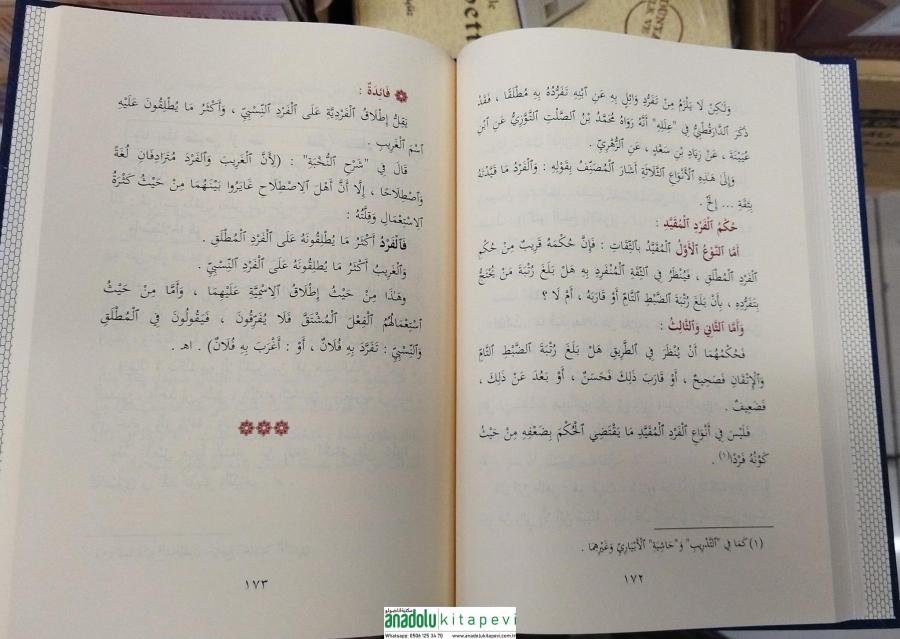 وَلَـٰكِنْ لَا يَلْزَمُ مِنْ تَفَرُّدِ وَائِلٍ بِهِ عَنِ ٱبْنِهِ تَفَرُّدُهُ بِهِ مُطْلَقًا ، فَقَدْ
ذَكَرَ ٱلدَّارَقُطْنِيُّ فِي "عِلَلِهِ" أَنَّهُ رَوَاهُ مُحَمَّدُ بْنُ ٱلصَّلْتِ ٱلتَّوَّزِيُّ عَنِ ٱبْنِ
عُيَيْنَةَ ، عَنْ زِيَادِ بْنِ سَعْدٍ ، عَنِ ٱلزُّهْرِيِّ .
وَإِلَىٰ هَـٰذِهِ ٱلْأَنْوَاعِ ٱلثَّلَاثَةِ أَشَارَ ٱلْمُصَنِّفُ بِقَوْلِهِ : وَٱلْفَرْدُ مَا قَيَّدْتَهُ
بِثِقَةٍ ... إِلَخْ .
حُكْمُ ٱلْفَرْدِ ٱلْمُقَيَّدِ :
أَمَّا ٱلنَّوْعُ ٱلْأَوَّلُ ٱلْمُقَيَّدُ بِٱلثِّقَاتِ : فَإِنَّ حُكْمَهُ قَرِيبٌ مِنْ حُكْمِ
ٱلْفَرْدِ ٱلْمُطْلَقِ ، فَيُنْظَرُ فِي ٱلثِّقَةِ ٱلْمُنْفَرِدِ بِهِ هَلْ بَلَغَ رُتْبَةَ مَنْ يُحْتَجُّ
بِتَفَرُّدِهِ ، بِأَنْ بَلَغَ رُتْبَةَ ٱلضَّبْطِ ٱلتَّامِّ أَوْ قَارَبَهُ ، أَمْ لَا ؟
وَأَمَّا ٱلثَّانِي وَٱلثَّالِثُ :
فَحُكْمُهُمَا أَنْ يُنْظَرَ فِي ٱلطَّرِيقِ هَلْ بَلَغَ رُتْبَةَ ٱلضَّبْطِ ٱلتَّامِّ
وَٱلْإِتْقَانِ فَصَحِيحٌ ، أَوْ قَارَبَ ذَلِكَ فَحَسَنٌ ، أَوْ بَعُدَ عَنْ ذَلِكَ ،
فَضَعِيفٌ .
فَلَيْسَ فِي أَنْوَاعِ ٱلْفَرْدِ ٱلْمُقَيَّدِ مَا يَقْتَضِي ٱلْحُكْمَ بِضَعْفِهِ مِنْ حَيْثُ
كَوْنُهُ فَرْدًا(١) .
(١) كَمَا فِي "ٱلتَّدْرِيبِ" وَ"حَاشِيَةِ" ٱلْأَبْيَارِيِّ وَغَيْرِهِمَا .
١٧٢
فَائِدَةٌ :
يَقِلُّ إِطْلَاقُ ٱلْفَرْدِيَّةِ عَلَى ٱلْفَرْدِ ٱلنِّسْبِيِّ ، وَأَكْثَرُ مَا يُطْلِقُونَ عَلَيْهِ
ٱسْمَ ٱلْغَرِيبِ .
قَالَ فِي "شَرْحِ ٱلنُّخْبَةِ" : (لِأَنَّ ٱلْغَرِيبَ وَٱلْفَرْدَ مُتَرَادِفَانِ لُغَةً
وَٱصْطِلَاحًا ، إِلَّا أَنَّ أَهْلَ ٱلِٱصْطِلَاحِ غَايَرُوا بَيْنَهُمَا مِنْ حَيْثُ كَثْرَةُ
ٱلِٱسْتِعْمَالِ وَقِلَّتُهُ :
فَٱلْفَرْدُ أَكْثَرُ مَا يُطْلِقُونَهُ عَلَى ٱلْفَرْدِ ٱلْمُطْلَقِ .
وَٱلْغَرِيبُ أَكْثَرُ مَا يُطْلِقُونَهُ عَلَى ٱلْفَرْدِ ٱلنِّسْبِيِّ .
وَهَـٰذَا مِنْ حَيْثُ إِطْلَاقُ ٱلِٱسْمِيَّةِ عَلَيْهِمَا ، وَأَمَّا مِنْ حَيْثُ
ٱسْتِعْمَالُهُمُ ٱلْفِعْلَ ٱلْمُشْتَقَّ فَلَا يُفَرِّقُونَ ، فَيَقُولُونَ فِي ٱلْمُطْلَقِ
وَٱلنِّسْبِيِّ : تَفَرَّدَ بِهِ فُلَانٌ ، أَوْ : أَغْرَبَ بِهِ فُلَانٌ) . اهـ .
١٧٣
مكتبة اناضولو
anadolu kitapevi
Whatsapp: 0506 125 34 70 www.anadolukitapevi.com.tr